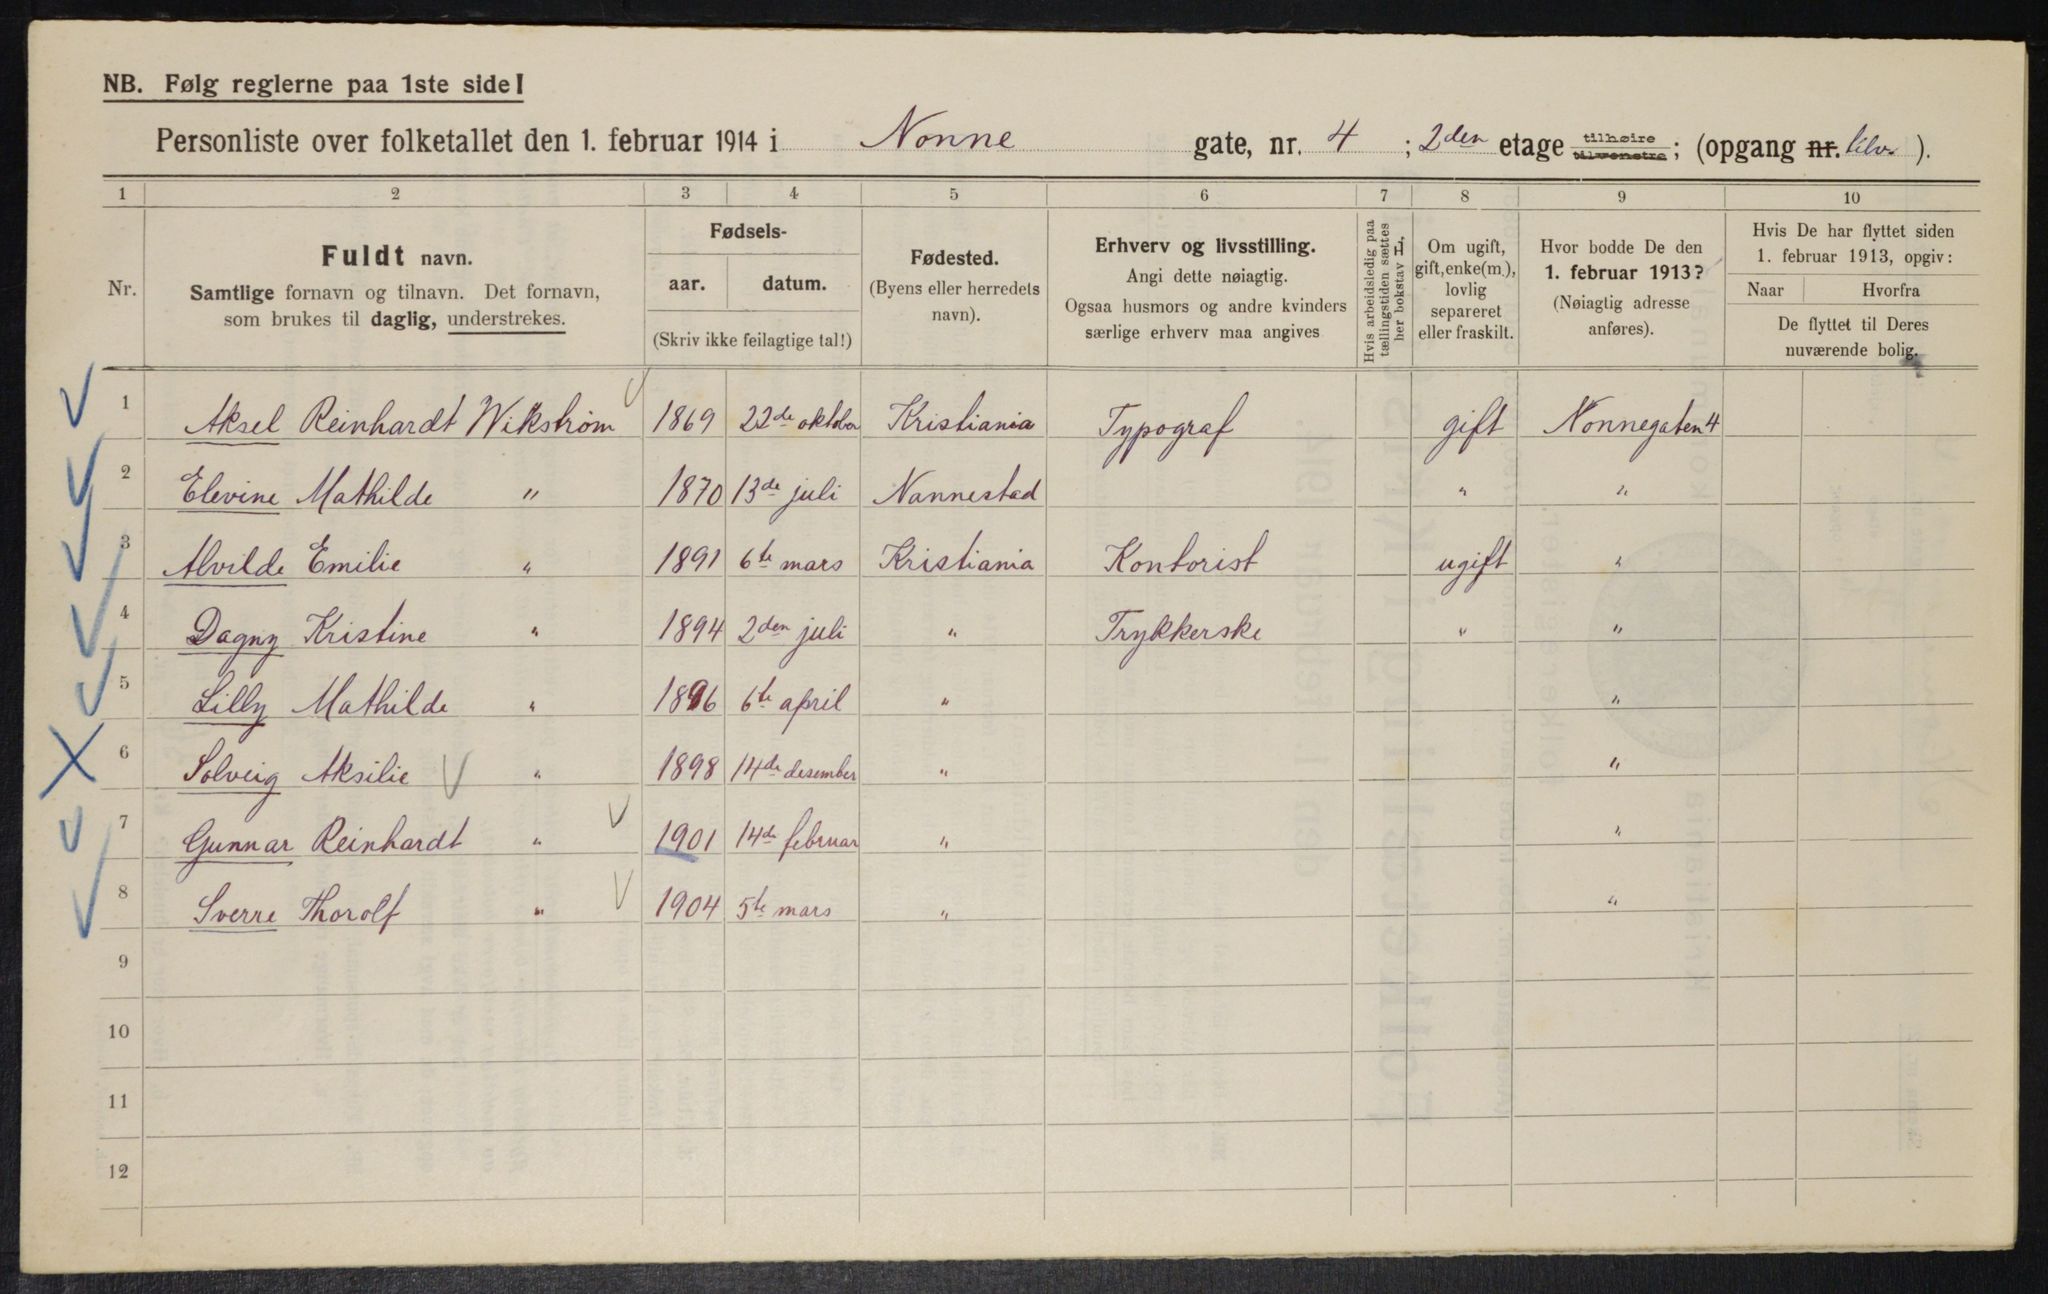 NB. Følg reglerne paa 1ste side!
Personliste over folketallet den 1. februar 1914 i Nonne gate, nr. 4 ; 2den etage tilhøire tilvenstre ; (opgang nr. ).
1 2 3 4 5 6 7 8 9 10
Nr.
Fuldt navn.
Samtlige fornavn og tilnavn. Det fornavn,
som brukes til daglig, understrekes.
Fødsels-
aar. datum.
(Skriv ikke feilagtige tal!)
Fødested.
(Byens eller herredets
navn).
Erhverv og livsstilling.
Angi dette nøiagtig.
Ogsaa husmors og andre kvinders
særlige erhverv maa angives
Hvis arbeidsledig paa
tællingstiden sættes
her bokstav L.
Om ugift,
gift, enke(m.),
lovlig
separeret
eller fraskilt.
Hvor bodde De den
1. februar 1913?
(Nøiagtig adresse
anføres).
Hvis De har flyttet siden
1. februar 1913, opgiv:
Naar Hvorfra
De flyttet til Deres
nuværende bolig.
1 Aksel Reinhardt Wikstrøm 1869 22de oktober Kristiania Typograf gift Nonnegaten 4
2 Elevine Mathilde " 1870 13de juli Nannestad " "
3 Alvilde Emilie " 1891 6te mars Kristiania Kontorist ugift "
4 Dagny Kristine " 1894 2den juli " Trykkerske " "
5 Lilly Mathilde " 1896 6te april " "
6 Solveig Aksilie " 1898 14de desember " "
7 Gunnar Reinhardt " 1901 14de februar " "
8 Sverre Thorolf " 1904 5te mars " "
9
10
11
12